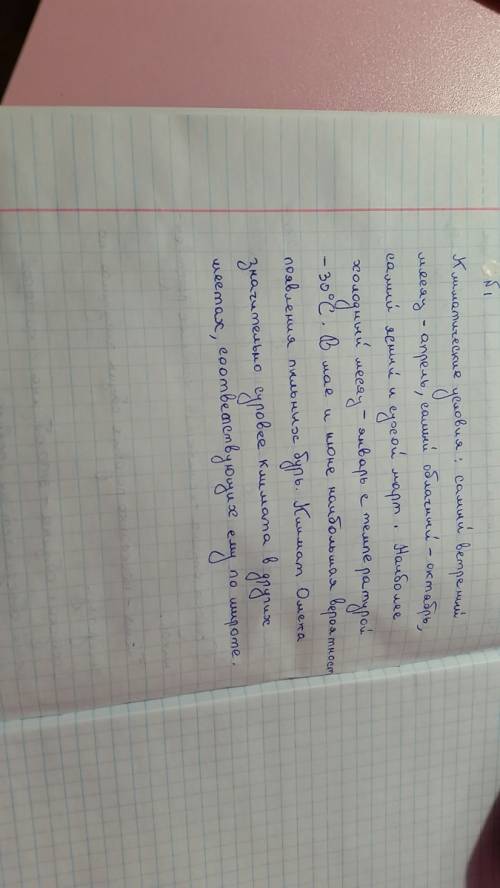 №1
Климатические условия: самый ветреный
месяц - апрель, самый облачный - октябрь,
самый ясный и сухой март. Наиболее
холодный месяц - январь с температурой
-30°С. В мае и июне наибольшая вероятност
появления пыльных бурь. Климат Омска
значительно суровее климата в других
местах, соответствующих ему по широте.